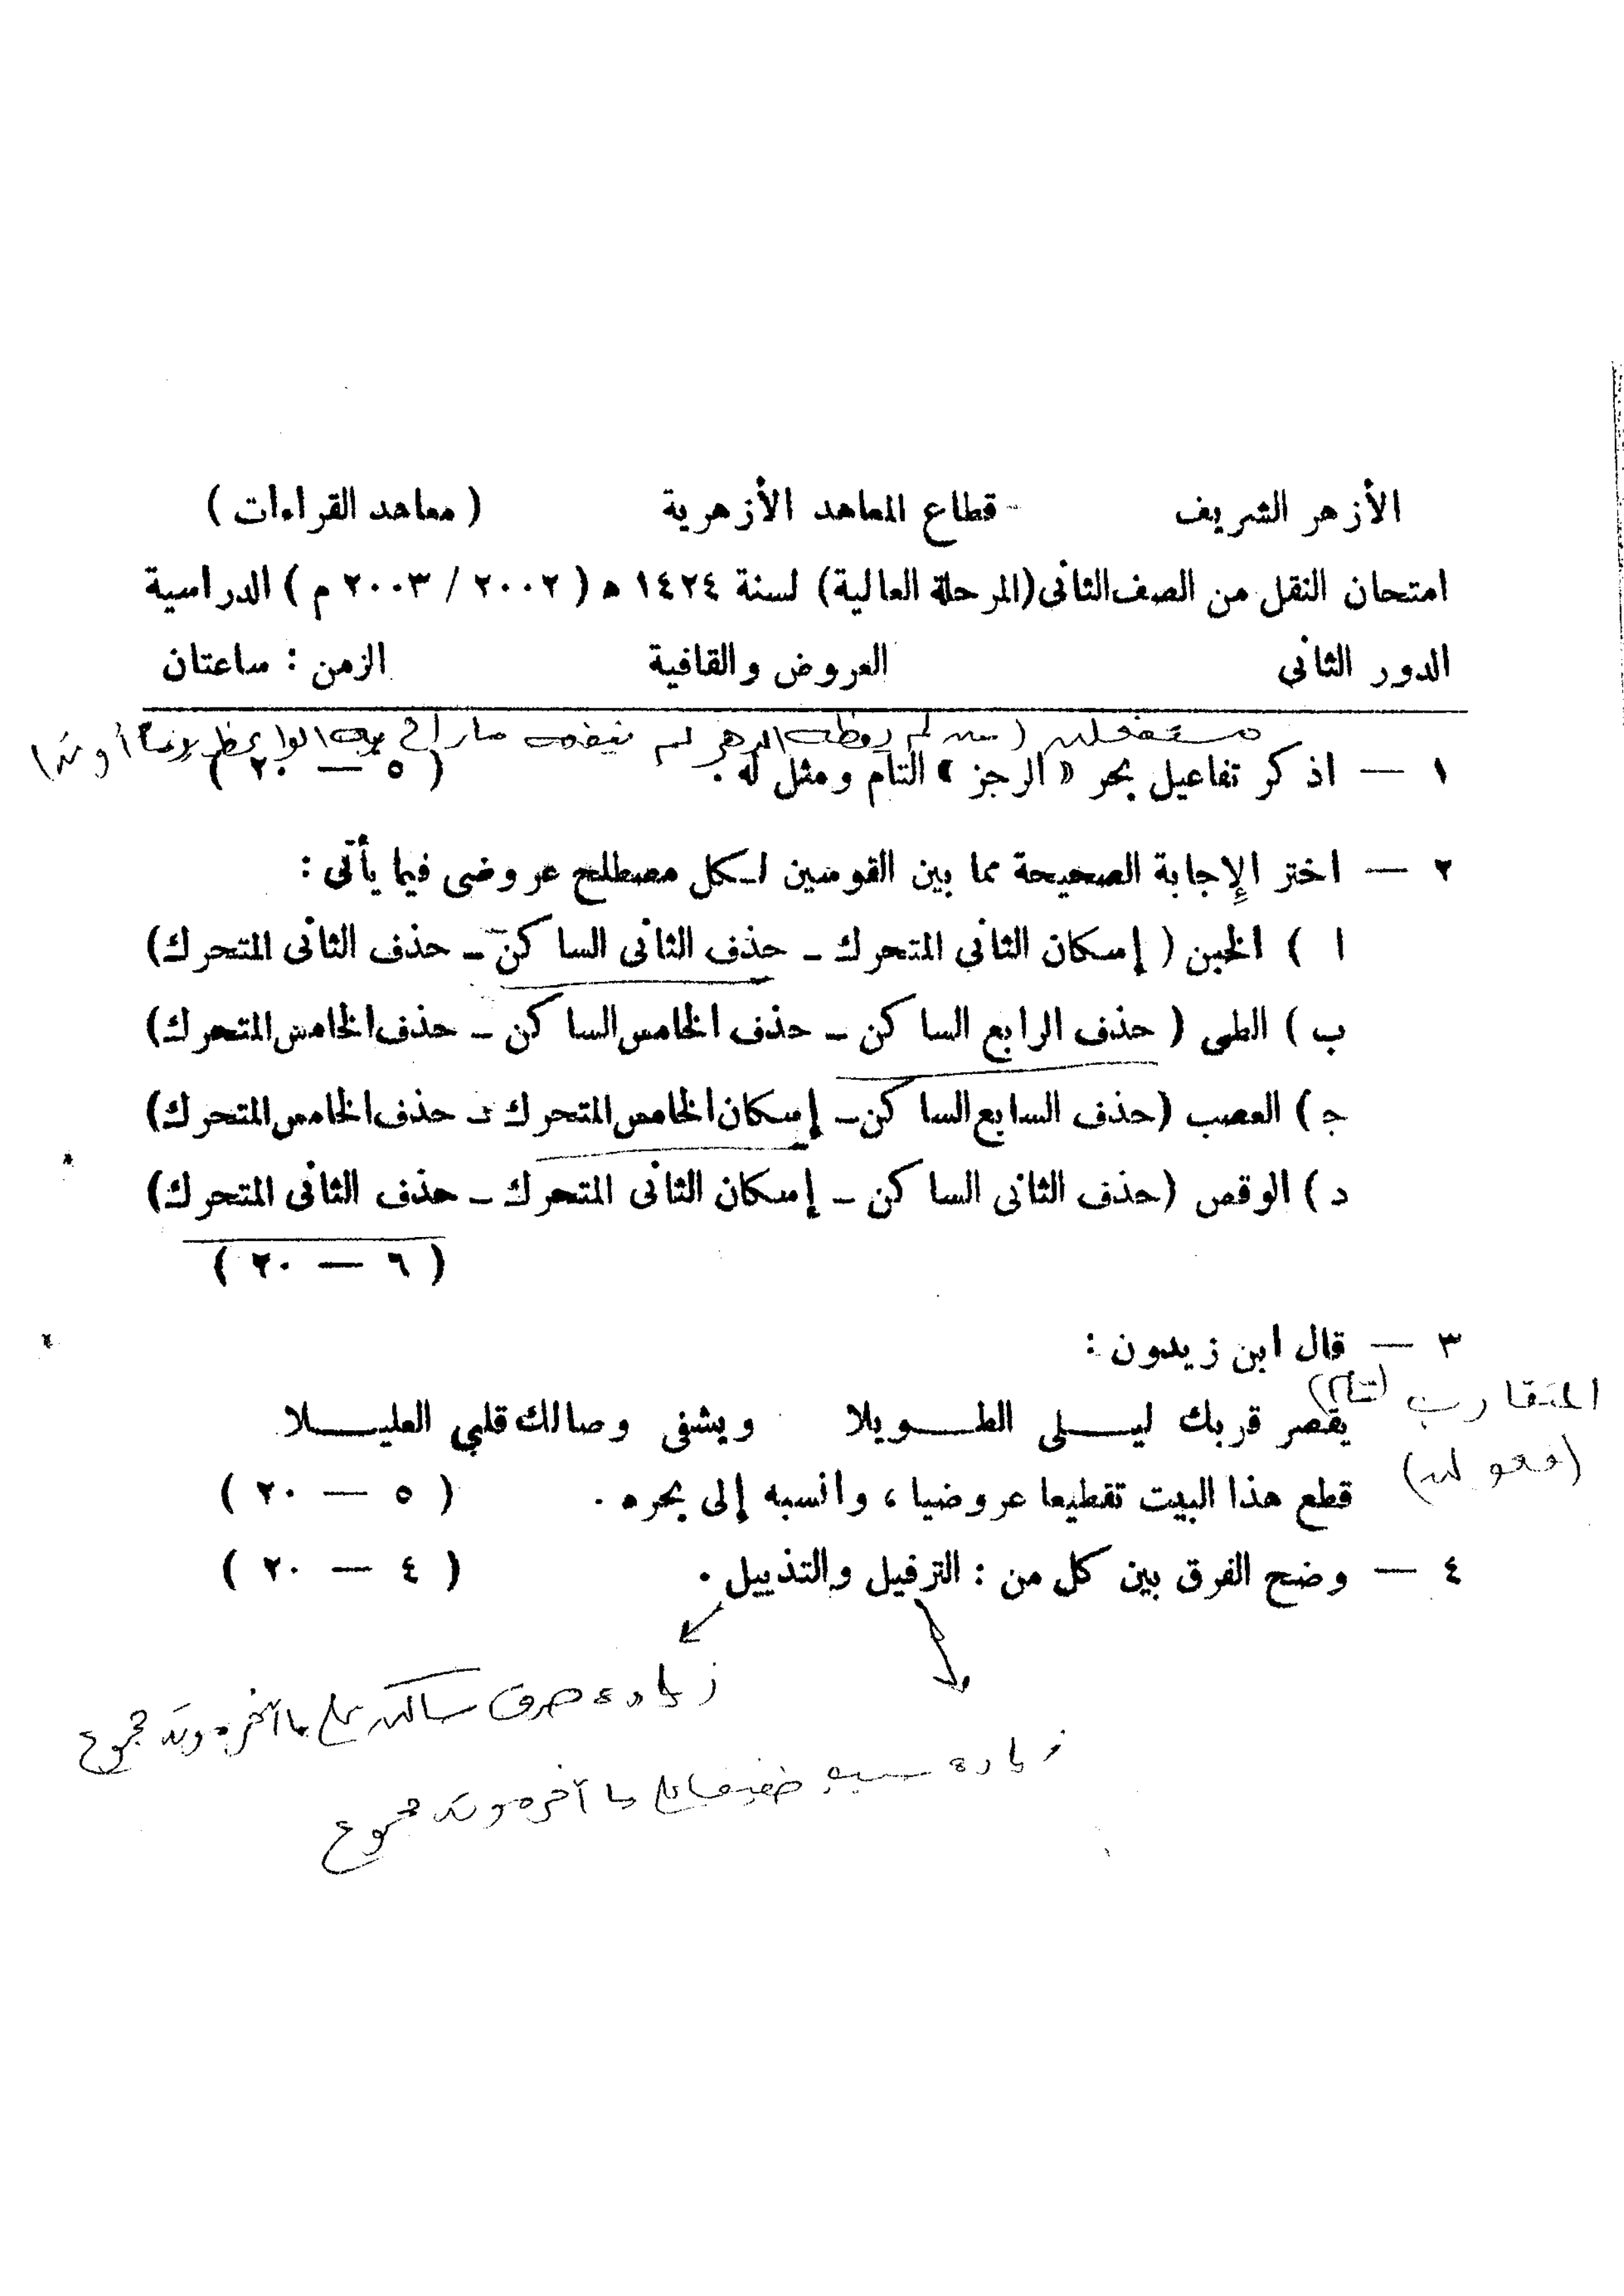 الأزهر الشريف قطاع المعاهد الأزهرية ( معاهد القراءات )
امتحان النقل من الصف الثانى (المرحلة العالية) لسنة ١٤٢٤ ه ( ٢٠٠٢ / ٢٠٠٣ م ) الدراسية
الدور الثانى العروض والقافية الزمن : ساعتان
مستفعلن ( من لم يعظه الدهر لم ينفعه ما راح به الواعظ يوما أو غدا )
١ — اذكر تفاعيل بحر « الرجز » التام ومثل له . ( ٥ — ٢٠ )
٢ — اختر الإجابة الصحيحة مما بين القوسين لكل مصطلح عروضى فيما يأتى :
ا ) الخبن ( إسكان الثانى المتحرك – حذف الثانى الساكن – حذف الثانى المتحرك)
ب ) الطى ( حذف الرابع الساكن – حذف الخامس الساكن – حذف الخامس المتحرك)
ج ) العصب (حذف السابع الساكن – إسكان الخامس المتحرك – حذف الخامس المتحرك)
د ) الوقص (حذف الثانى الساكن – إسكان الثانى المتحرك – حذف الثانى المتحرك)
( ٦ — ٢٠ )
٣ — قال ابن زيدون :
المتقارب (تام)
يقصر قربك ليلى الطويلا ويشفى وصالك قلبي العليلا
(فعولن)
قطع هذا البيت تقطيعا عروضيا ، وانسبه إلى بحره . ( ٥ — ٢٠ )
٤ — وضح الفرق بين كل من : الترفيل والتذييل . ( ٤ — ٢٠ )
زيادة حرف ساكن على ما آخره وتد مجموع
زيادة سبب خفيف على ما آخره وتد مجموع